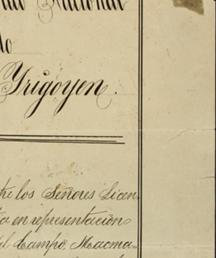 Nacional
do
Yrigoyen.
los Señores Licen
en representación
del Campo Macma